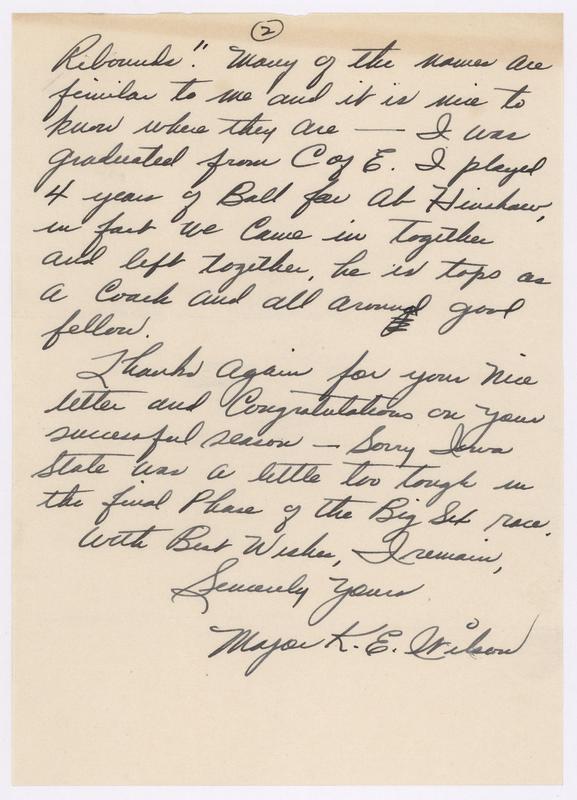 ②
Rebounds". Many of the names are
similar to me and it is nice to
know where they are — I was
graduated from C of E. I played
4 years of Ball for Ab Hinshaw,
in fact we came in together
and left together, he is tops as
a coach and all around good
fellow.
Thanks again for your nice
letter and Congratulations on your
successful season — Sorry Iowa
State was a little too tough in
the final Phase of the Big Six race.
With Best Wishes, I remain,
Sincerely Yours
Major K. E. Wilson